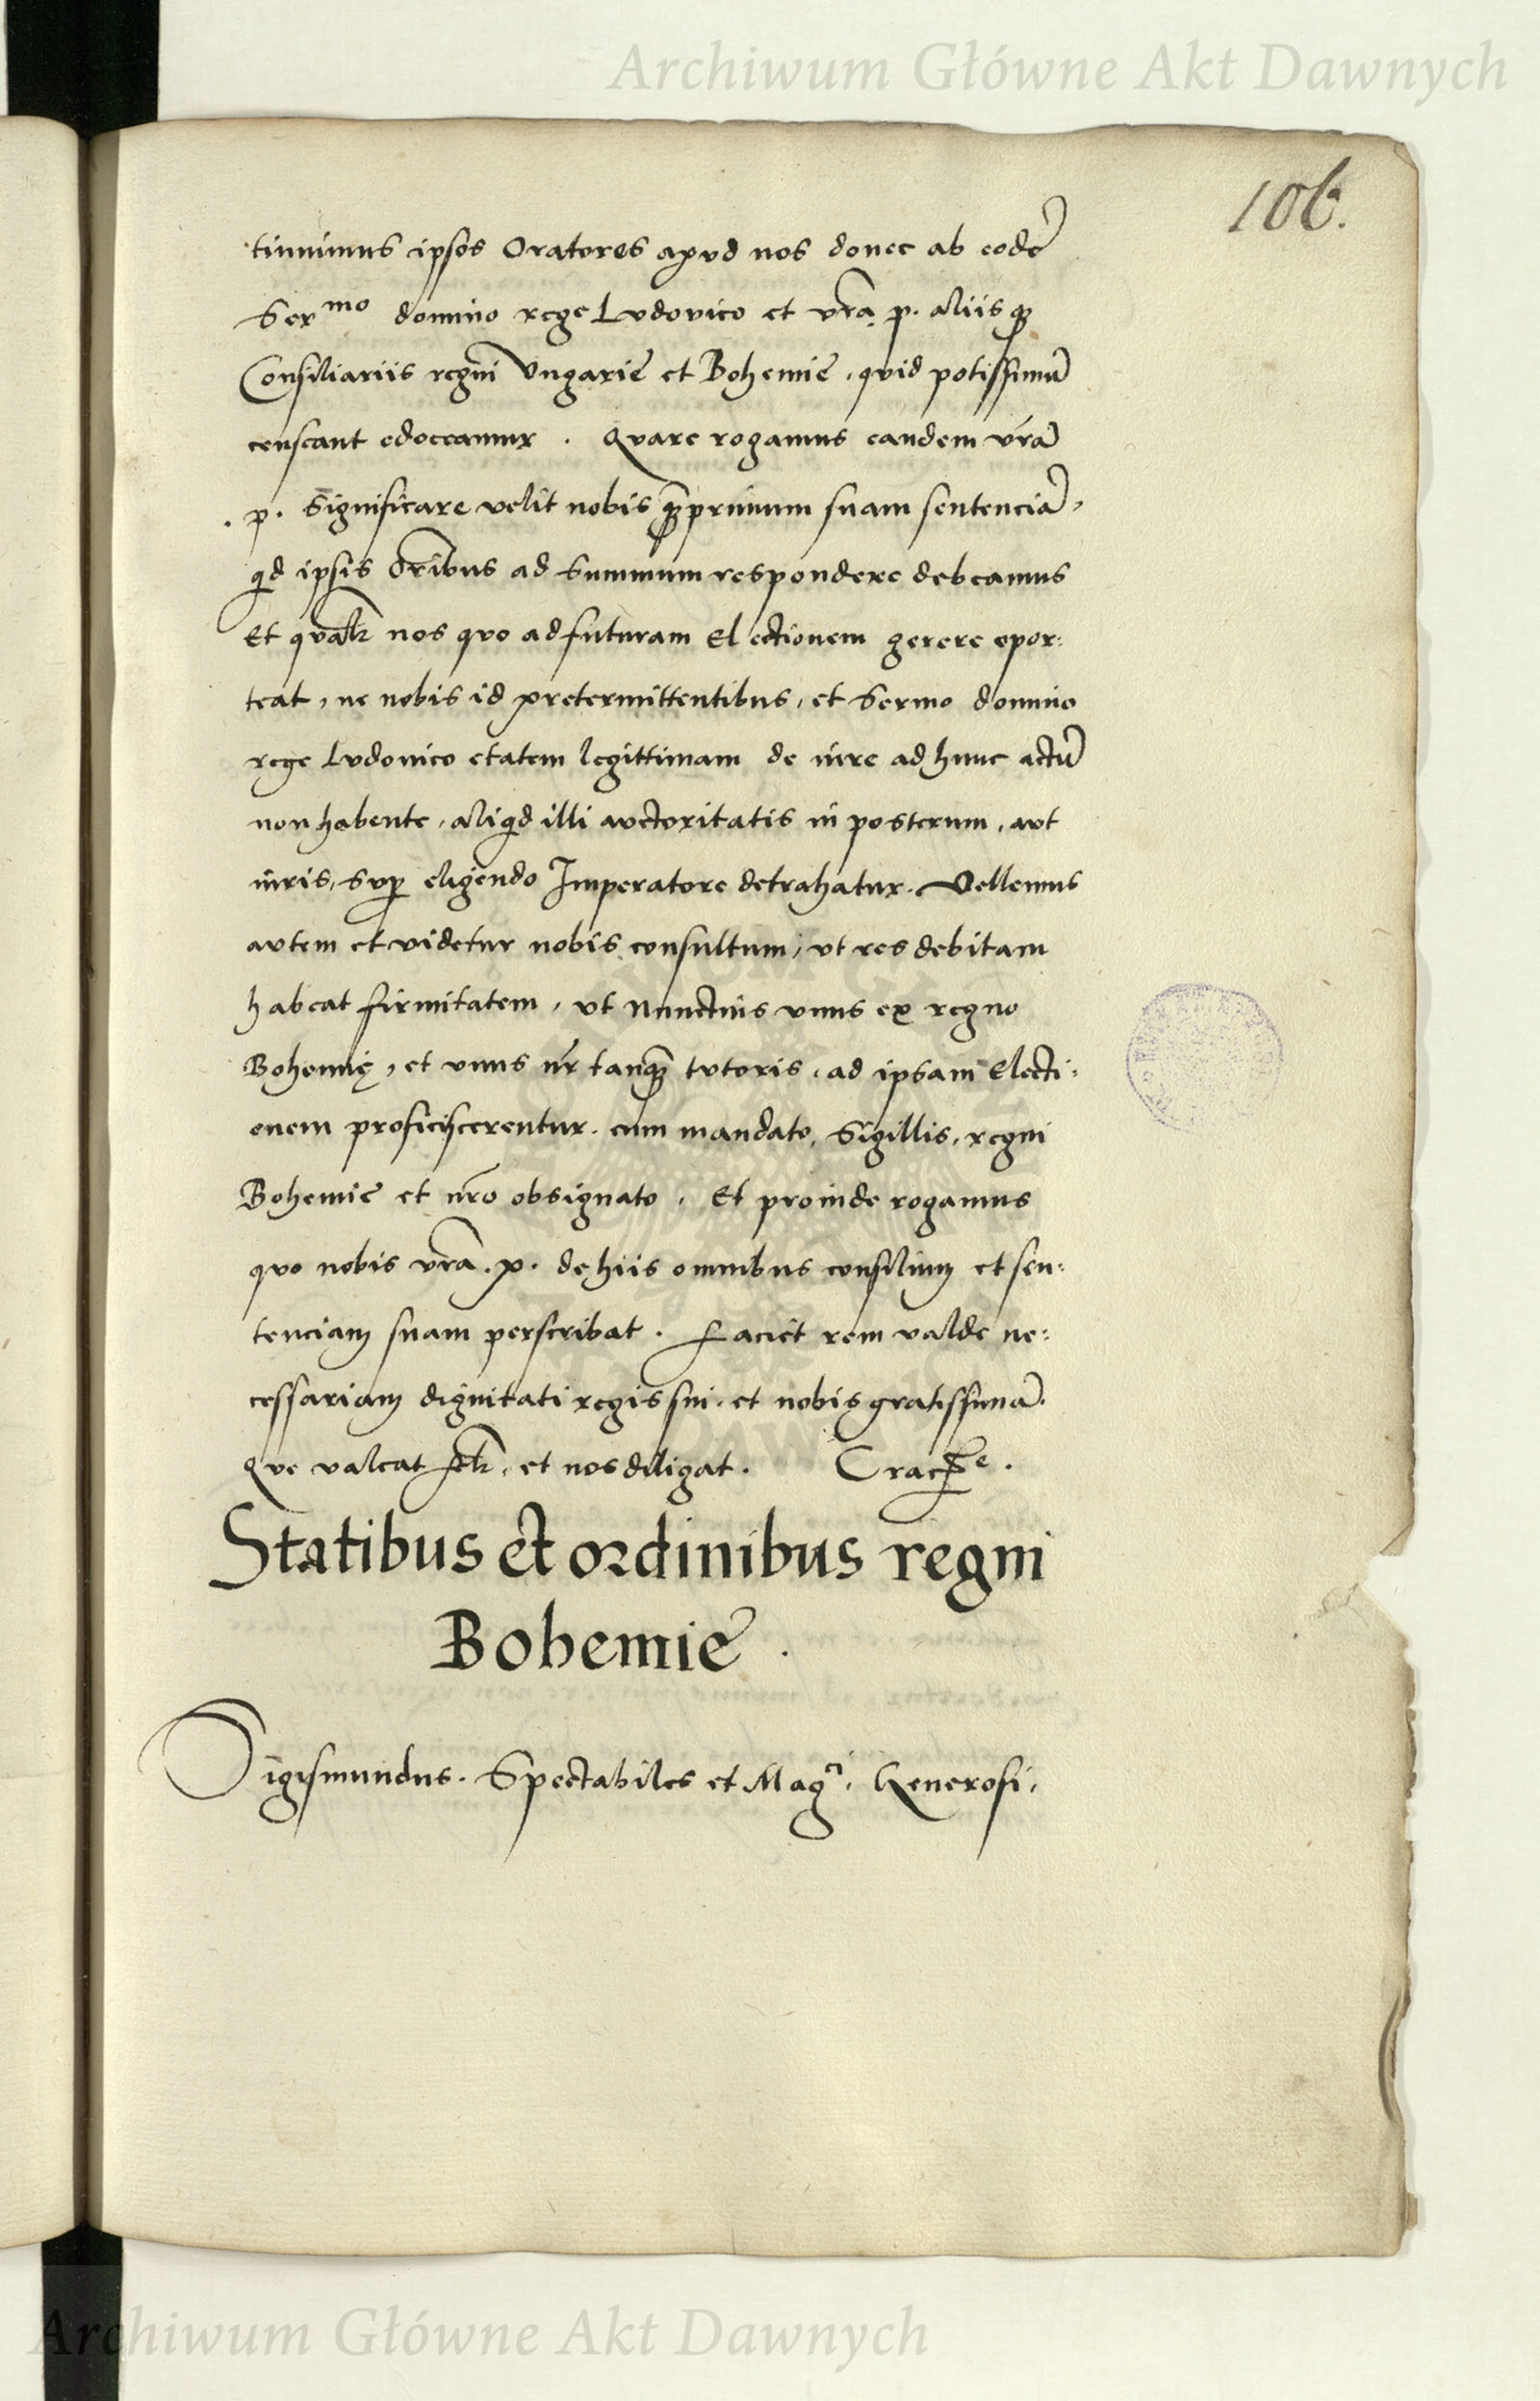 Archiwum Główne Akt Dawnych
106.
tinuimus ipsos Oratores apud nos donec ab eodē
Serᵐᵒ domino rege Ludovico et vrā p. aliisqꝫ
Consiliariis regni Vngarie et Bohemie, quid potissimū
censeant edoceamur. Quare rogamus eandem vrām
p. Significare velit nobis qꝫprimum suam sentenciā,
qd ipsis Orībus ad Summum respondere debeamus
Et qualr nos quo ad futuram Electionem gerere opor:
teat, ne nobis id pretermittentibus, et Sermo domino
rege Ludouico etatem legittimam de iure ad hunc actū
non habente, aliqd illi auctoritatis in posterum, aut
iuris, sup eligendo Imperatore detrahatur. Vellemus
autem et videtur nobis consultum, vt res debitam
habeat firmitatem, vt Nunctius vnus ex regno
Bohemię, et vnus nr̄ tanqꝫ tutoris, ad ipsam Electi:
onem proficiscerentur. cum mandato, Sigillis, regni
Bohemie et nr̄o obsignato. Et proinde rogamus
quo nobis vrā. p. de hiis omnibus consilium et sen:
tenciam suam perscribat. Faciet rem valde ne:
cessariam dignitati regis sui. et nobis gratissimā.
Que valeat felr, et nos diligat. Cracᵉ.
Statibus et ordinibus regni
Bohemie.
Sigismundus. Spectabiles et Magᶜⁱ, Generosi,
Archiwum Główne Akt Dawnych